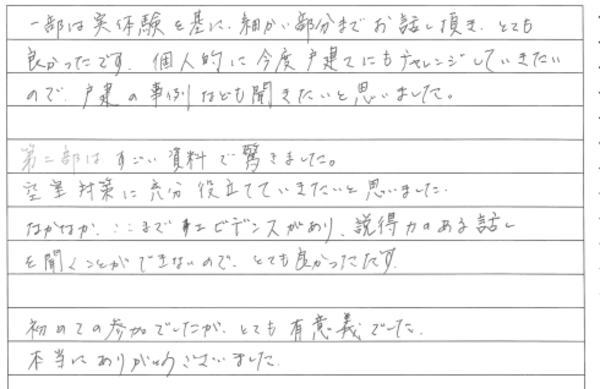 一部は実体験を基に、細かい部分までお話し頂き、とても
良かったです。個人的に今度戸建てにもチャレンジしていきたい
ので、戸建の事例なども聞きたいと思いました。
第二部はすごい資料で驚きました。
空室対策に充分役立てていきたいと思いました。
なかなか、ここまでエビデンスがあり、説得力のある話し
を聞くことができないので、とても良かったです。
初めての参加でしたが、とても有意義でした。
本当にありがとうございました。